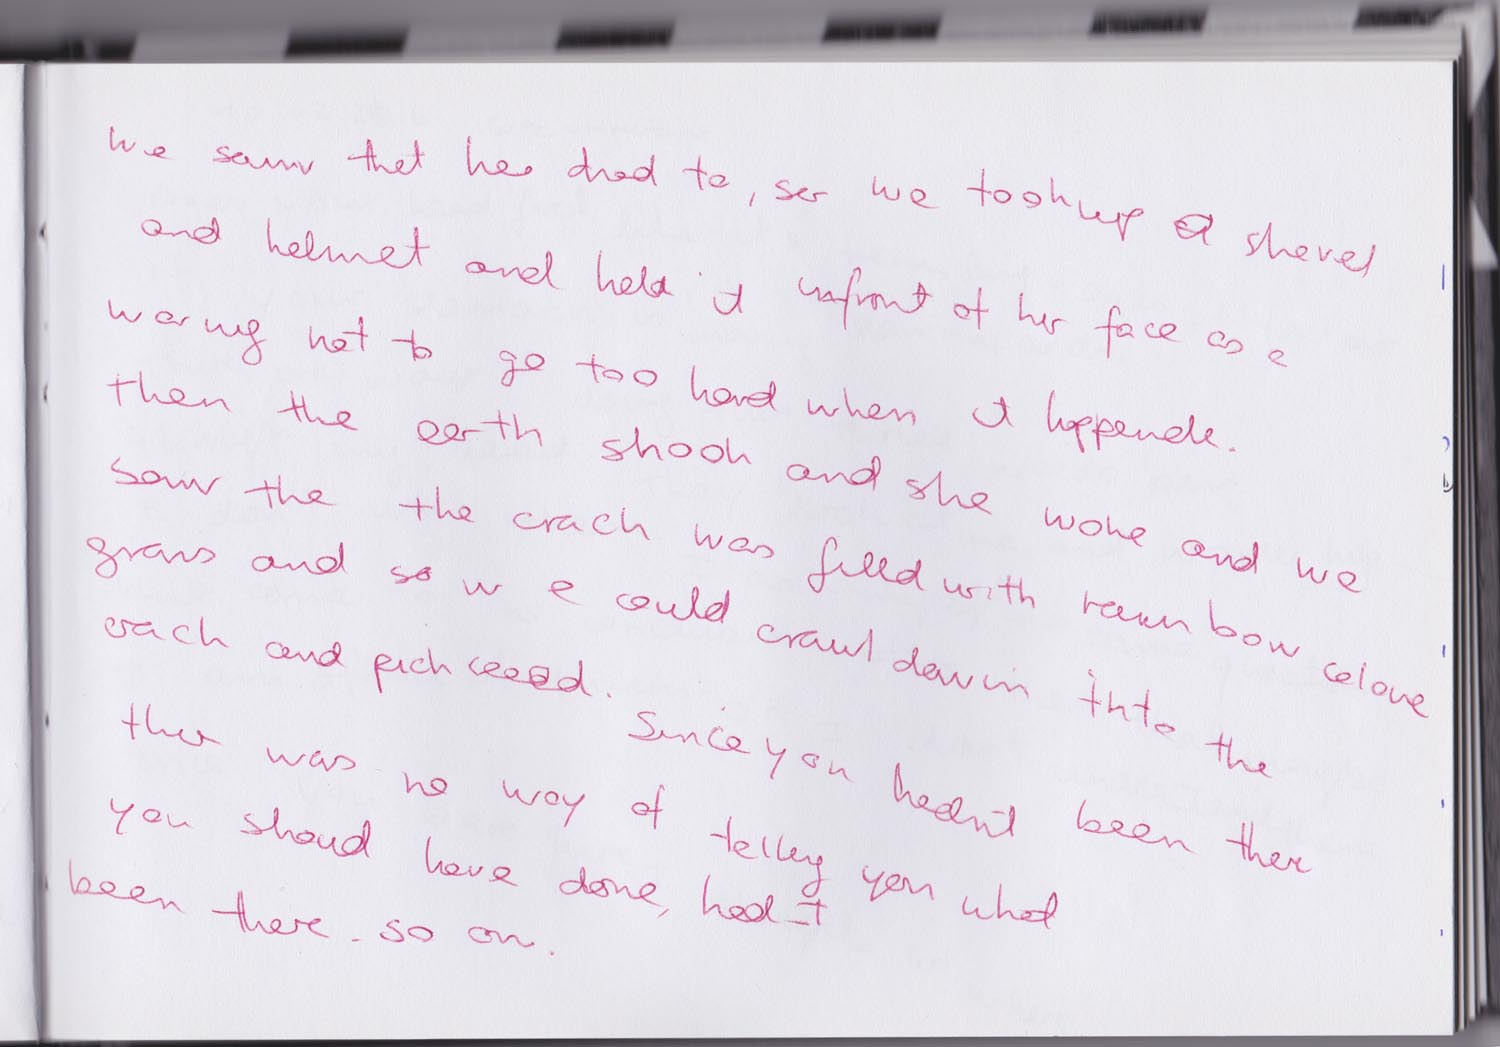 we saw that hes drod to, ser we tooh up a shovel
and helmet and held it infront of her face as a
waring not to go too hard when it happende.
then the earth shooh and she woke and we
saw the the crach was filled with rainbow colour
grass and so we could crawl down into the
crach and pich ceeed.
Since you hadn't been ther
ther was no way of telleg you what
you should have done, had it
been there. so on.